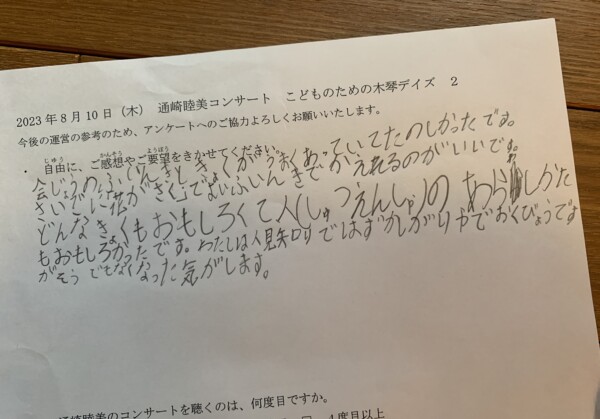 2023年8月10日（木） 通崎睦美コンサート こどものための木琴デイズ 2
今後の運営の参考のため、アンケートへのご協力よろしくお願いいたします。
・自由に、ご感想やご要望をきかせてください。
じゆう かんそう ようぼう
会じょうのふんいきときょくがうまくあっていてたのしかったです。
さいごに「花がさく」でよいふんいきでかえれるのがいいです。
どんなきょくもおもしろくて人(しゅつえんしゃ)のあらわしかた
もおもしろかったです。わたしは人見知りではずかしがりやでおくびょうです
がそうでもなくなった気がします。
通崎睦美のコンサートを聴くのは、何度目ですか。
4度目以上